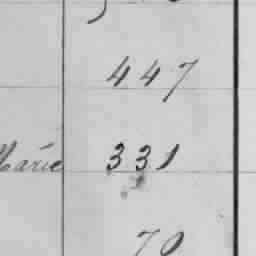 447
Marie 331
70